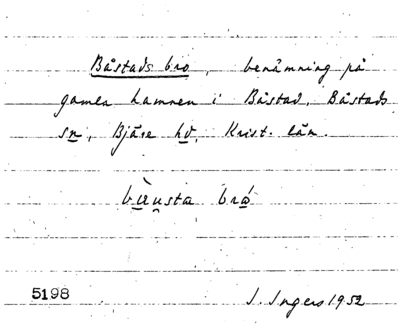 Båstads bro, benämning på
gamla hamnen i Båstad, Båstads
sn, Bjäre hd, Krist. län.
bàusta bró
5198
I. Ingers 1952